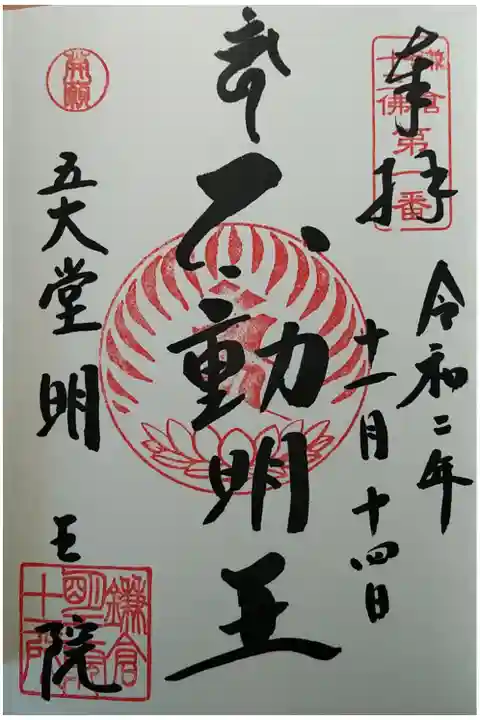 奉拝
鎌倉
十三佛
第一番
令和二年
十一月十四日
不動明王
五大堂明王院
発願
鎌倉
明王院